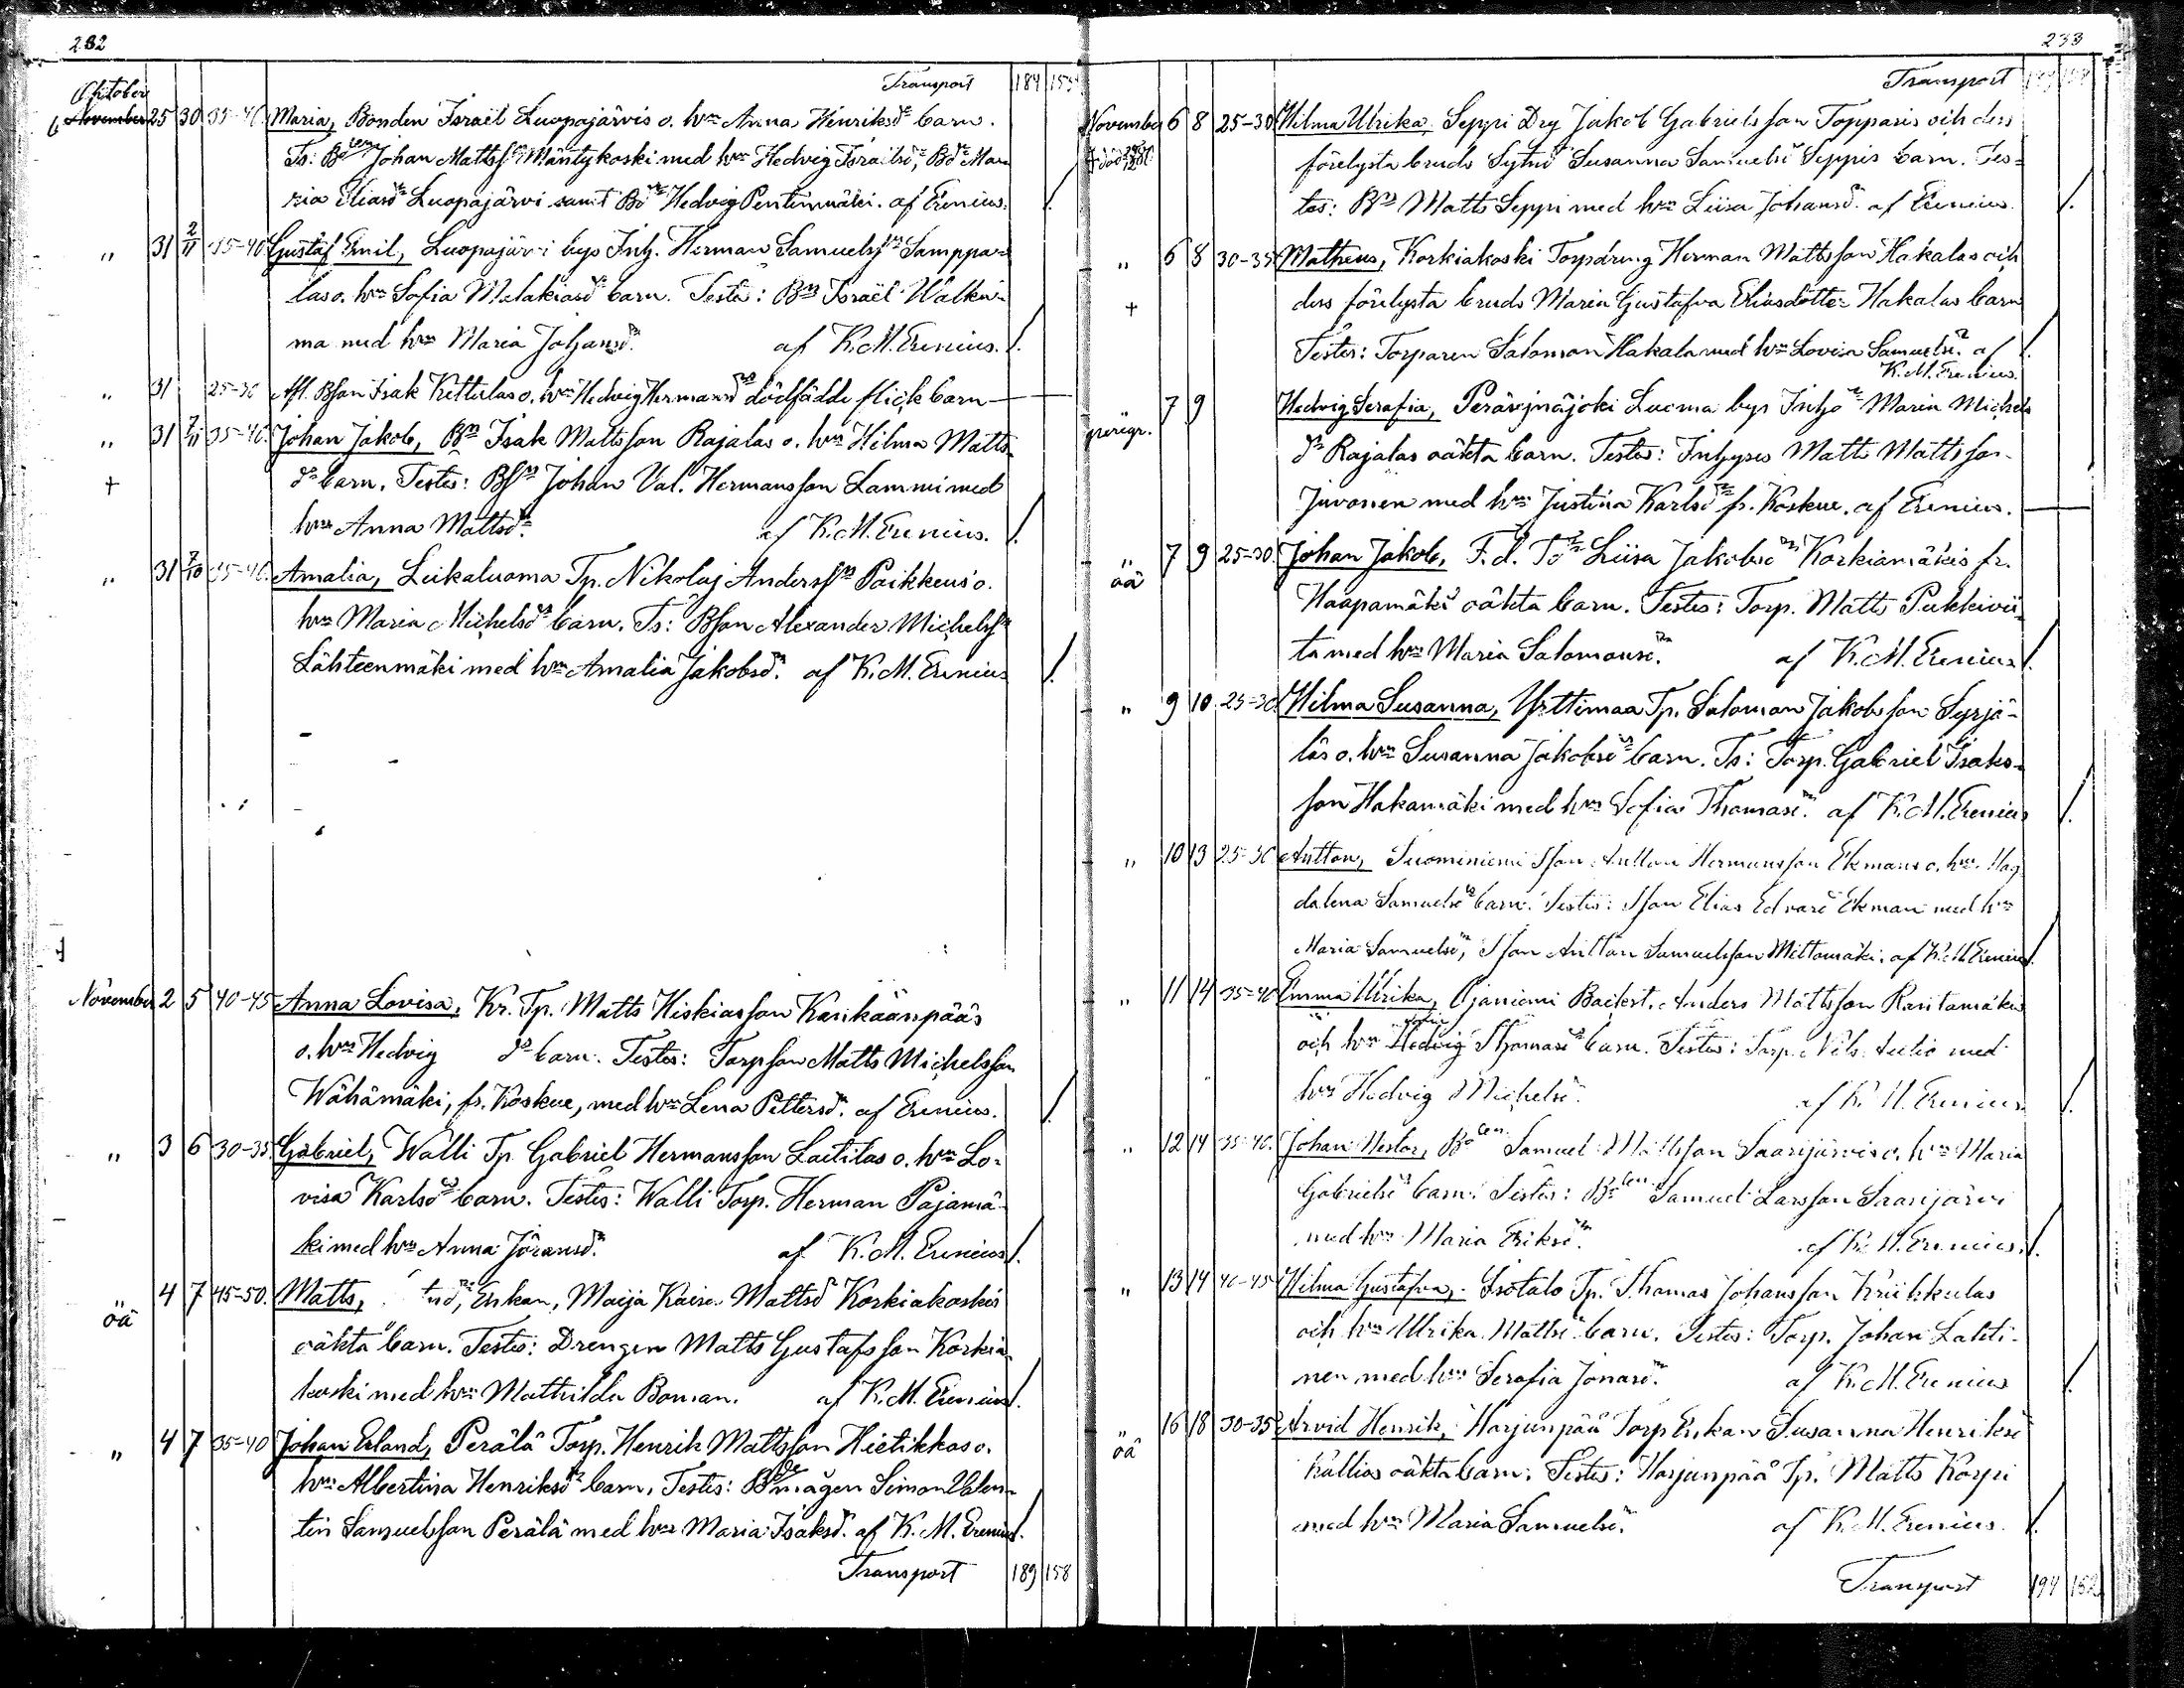 232
Transport 184 153
Oktober
November 25 30 35-40 Maria, Bonden Israël Luopajärvis o. hm Anna Henriksdr barn.
Ts: Bd Johan Mattss Mäntykoski med hm Hedvig Israëlsd, Bd Ma-
ria Eliasd Luopajärvi samt Bd Hedvig Pentinmäki. af Erenius.
" 31 2/11 35-40 Gustaf Emil, Luopajärvi bys Inh. Herman Samuelss Samppa-
las o. hm Sofia Malakiasd barn. Testes: Bn Israël Walka-
ma med hm Maria Johansd. af K.M. Erenius.
" 31 25-30 Afl. Bson Isak Ketturlas o. hm Hedvig Hermansd dödfödde flickbarn
" 31 7/11 35-40. Johan Jakob, Bn Isak Mattsson Rajalas o. hm Hilma Matts-
† dr barn. Testes: Bsn Johan Val. Hermansson Lammi med
hm Anna Mattsd. af K.M. Erenius.
" 31 7/10 35-40. Amalia, Leikaluoma Tp. Nikolaj Anderss Paikkeus o.
hm Maria Michelsd barn. Ts: Bson Alexander Michelss
Lähteenmäki med hm Amalia Jakobsd. af K.M. Erenius
November 2 5 40-45 Anna Lovisa, Kr. Tp. Matts Hiskiasson Karikäänpääs
o. hm Hedvig dr barn. Testes: Torpson Matts Michelsson
Wähämäki, fr. Koskue, med hm Lena Pettersd. af Erenius.
" 3 6 30-35. Gabriel, Walli Tp. Gabriel Hermansson Laitilas o. hm Lo-
visa Karlsd barn. Testes: Walli Torp. Herman Pajamä-
ki med hm Anna Göransd. af K.M. Erenius.
" 4 7 45-50. Matts, Enkan, Maija Kaisa Mattsd Korkiakoskis
oä oäkta barn. Testes: Drengen Matts Gustafsson Korkia-
koski med hm Mathilda Boman. af K.M. Erenius.
" 4 7 35-40 Johan Erland, Perälä Torp. Henrik Mattsson Hietikkas o.
hm Albertina Henriksd barn. Testes: Bdemågen Simon Valen-
tin Samuelsson Perälä med hm Maria Isaksd. af K.M. Erenius.
Transport 189 158
233
Transport
November 6 8 25-30 Hilma Ulrika, Seppi Drg Jakob Gabrielsson Topparis och dess
förelysta bruds Sytnd Susanna Samuelsd Seppis barn. Tes-
tes: Bn Matts Seppi med hm Liisa Johansd. af Erenius.
" 6 8 30-35 Matheus, Korkiakoski Torpdreng Herman Mattsson Hakalas och
† dess förelysta bruds Maria Gustafva Eliasdotter Hakalas barn
Testes: Torparen Salomon Hakala med hm Lovisa Samuelsd. af
K.M. Erenius.
peregr. 7 9 Hedvig Serafia, Peräsejnäjoki Luoma bys Inho Maria Michels
dr Rajalas oäkta barn. Testes: Inhyses Matts Mattsson
Juvonen med hm Justina Karlsd fr. Koskue. af Erenius.
" 7 9 25-30. Johan Jakob, F.d. To Liisa Jakobsd Korkiamäkis fr.
oä Haapamäki oäkta barn. Testes: Torp. Matts Pukkivii-
ta med hm Maria Salomonsd. af K.M. Erenius.
" 9 10 25-30. Hilma Susanna, Yrttimaa Tp. Salomon Jakobsson Syrjä-
läs o. hm Susanna Jakobsd barn. Ts: Torp. Gabriel Isaks-
son Hakamäki med hm Sofia Thomasd. af K.M. Erenius
" 10 13 25-30 Antton, Suominiemi Sson Anttan Hermansson Ekmans o. hm Mag-
dalena Samuelsd barn. Testes: Sson Elias Edvard Ekman med hm
Maria Samuelsd, Sson Anttan Samuelsson Mittamäki. af K.M. Erenius.
" 11 14 35-40 Emma Ulrika, Ojaniemi Anders Mattsson Rantamäkis
och hm Hedvig Thomasd barn. Testes: Torp. Nils Aulio med
hm Hedvig Michelsd. af K.M. Erenius
" 12 14 35-40. Johan Nestor, Bd Samuel Mattsson Saarijärvis o. hm Maria
Gabrielsd barn. Testes: Bd Samuel Larsson Saarijärvi
med hm Maria Eriksd. af K.M. Erenius.
" 13 14 40-45 Hilma Gustafva, Isotalo Tp. Thomas Johansson Kriikkulas
och hm Ulrika Mattsd barn. Testes: Torp. Johan Lahti-
nen med hm Serafia Jonasd. af K.M. Erenius
" 16 18 30-35 Arvid Henrik, Harjunpää Torp Enkan Susanna Henriksd
oä Kallias oäkta barn. Testes: Harjunpää Tp. Matts Korpi
med hm Maria Samuelsd. af K.M. Erenius.
Transport 194 162